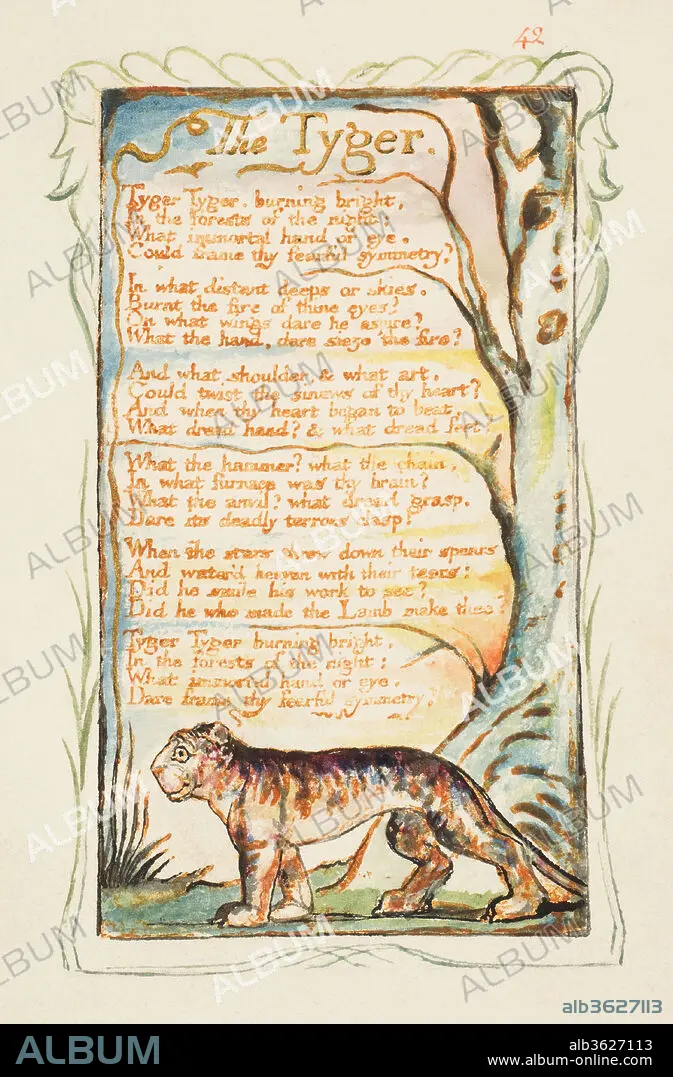 42
The Tyger.
Tyger Tyger. burning bright,
In the forests of the night;
What immortal hand or eye.
Could frame thy fearful symmetry?
In what distant deeps or skies.
Burnt the fire of thine eyes?
On what wings dare he aspire?
What the hand, dare sieze the fire?
And what shoulder, & what art,
Could twist the sinews of thy heart?
And when thy heart began to beat,
What dread hand? & what dread feet?
What the hammer? what the chain,
In what furnace was thy brain?
What the anvil? what dread grasp,
Dare its deadly terrors clasp?
When the stars threw down their spears
And water'd heaven with their tears:
Did he smile his work to see?
Did he who made the Lamb make thee?
Tyger Tyger burning bright,
In the forests of the night:
What immortal hand or eye,
Dare frame thy fearful symmetry?
alb3627113
ALBUM
alb3627113
www.album-online.com